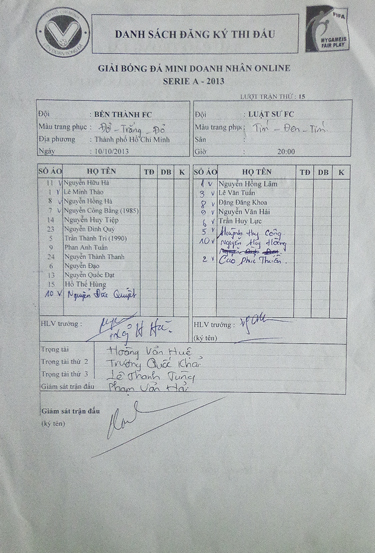 DANH SÁCH ĐĂNG KÝ THI ĐẤU
MY GAME IS FAIR PLAY
GIẢI BÓNG ĐÁ MINI DOANH NHÂN ONLINE
SERIE A - 2013
LƯỢT TRẬN THỨ : 15
Đội : BẾN THÀNH FC
Màu trang phục : Đỏ - Trắng - Đỏ
Địa phương : Thành phố Hồ Chí Minh
Ngày : 10/10/2013
Đội : LUẬT SƯ FC
Màu trang phục : Tím - Đen - Tím
Sân :
Giờ : 20:00
SỐ ÁO HỌ TÊN TĐ DB K
11 v Nguyễn Hữu Hà
1 v Lê Minh Thảo
8 v Nguyễn Hồng Hà
7 v Nguyễn Công Bằng (1985)
14 Nguyễn Huy Tiệp
23 Nguyễn Đình Quý
5 Trần Thành Trí (1990)
9 Phan Anh Tuấn
24 Nguyễn Thành Thanh
6 Nguyễn Đạo
13 Nguyễn Quốc Đạt
15 Hồ Thế Hùng
10 v Nguyễn Đức Quyết
SỐ ÁO HỌ TÊN TĐ DB K
1 v Nguyễn Hồng Lâm
3 v Lê Văn Tuấn
8 v Đặng Đăng Khoa
9 v Nguyễn Văn Hải
6 v Trần Huy Lực
5 v Huỳnh Huy Công
10 v Nguyễn Huy Hoàng
2 v Cao Phúc Thiên
HLV trưởng :
HLV trưởng :
(ký tên)
Trọng tài : Hoàng Văn Huê
Trọng tài thứ 2 : Trương Quốc Khải
Trọng tài thứ 3 : Lê Thanh Tùng
Giám sát trận đấu : Phạm Văn Hải
Giám sát trận đấu
(ký tên)